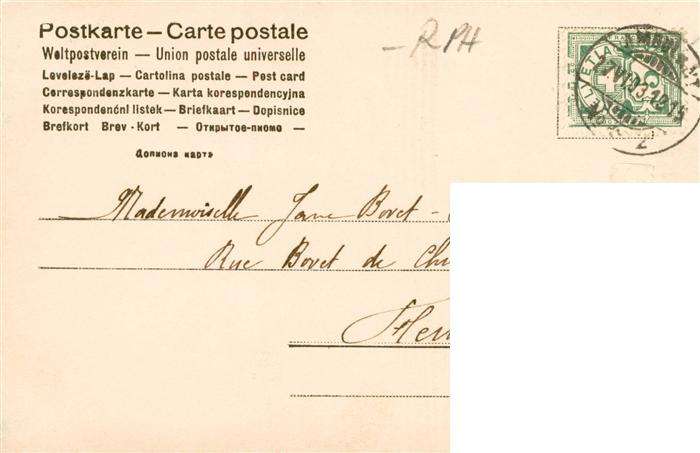 Postkarte — Carte postale
Weltpostverein — Union postale universelle
Levelezö-Lap — Cartolina postale — Post card
Correspondenzkarte — Karta korespondencyjna
Korespondenční listek — Briefkaart — Dopisnice
Brefkort Brev-Kort — Открытое-письмо —
Дописна карта
— RPH
HELVETIA
Mademoiselle Jane Bovet -
Rue Bovet de